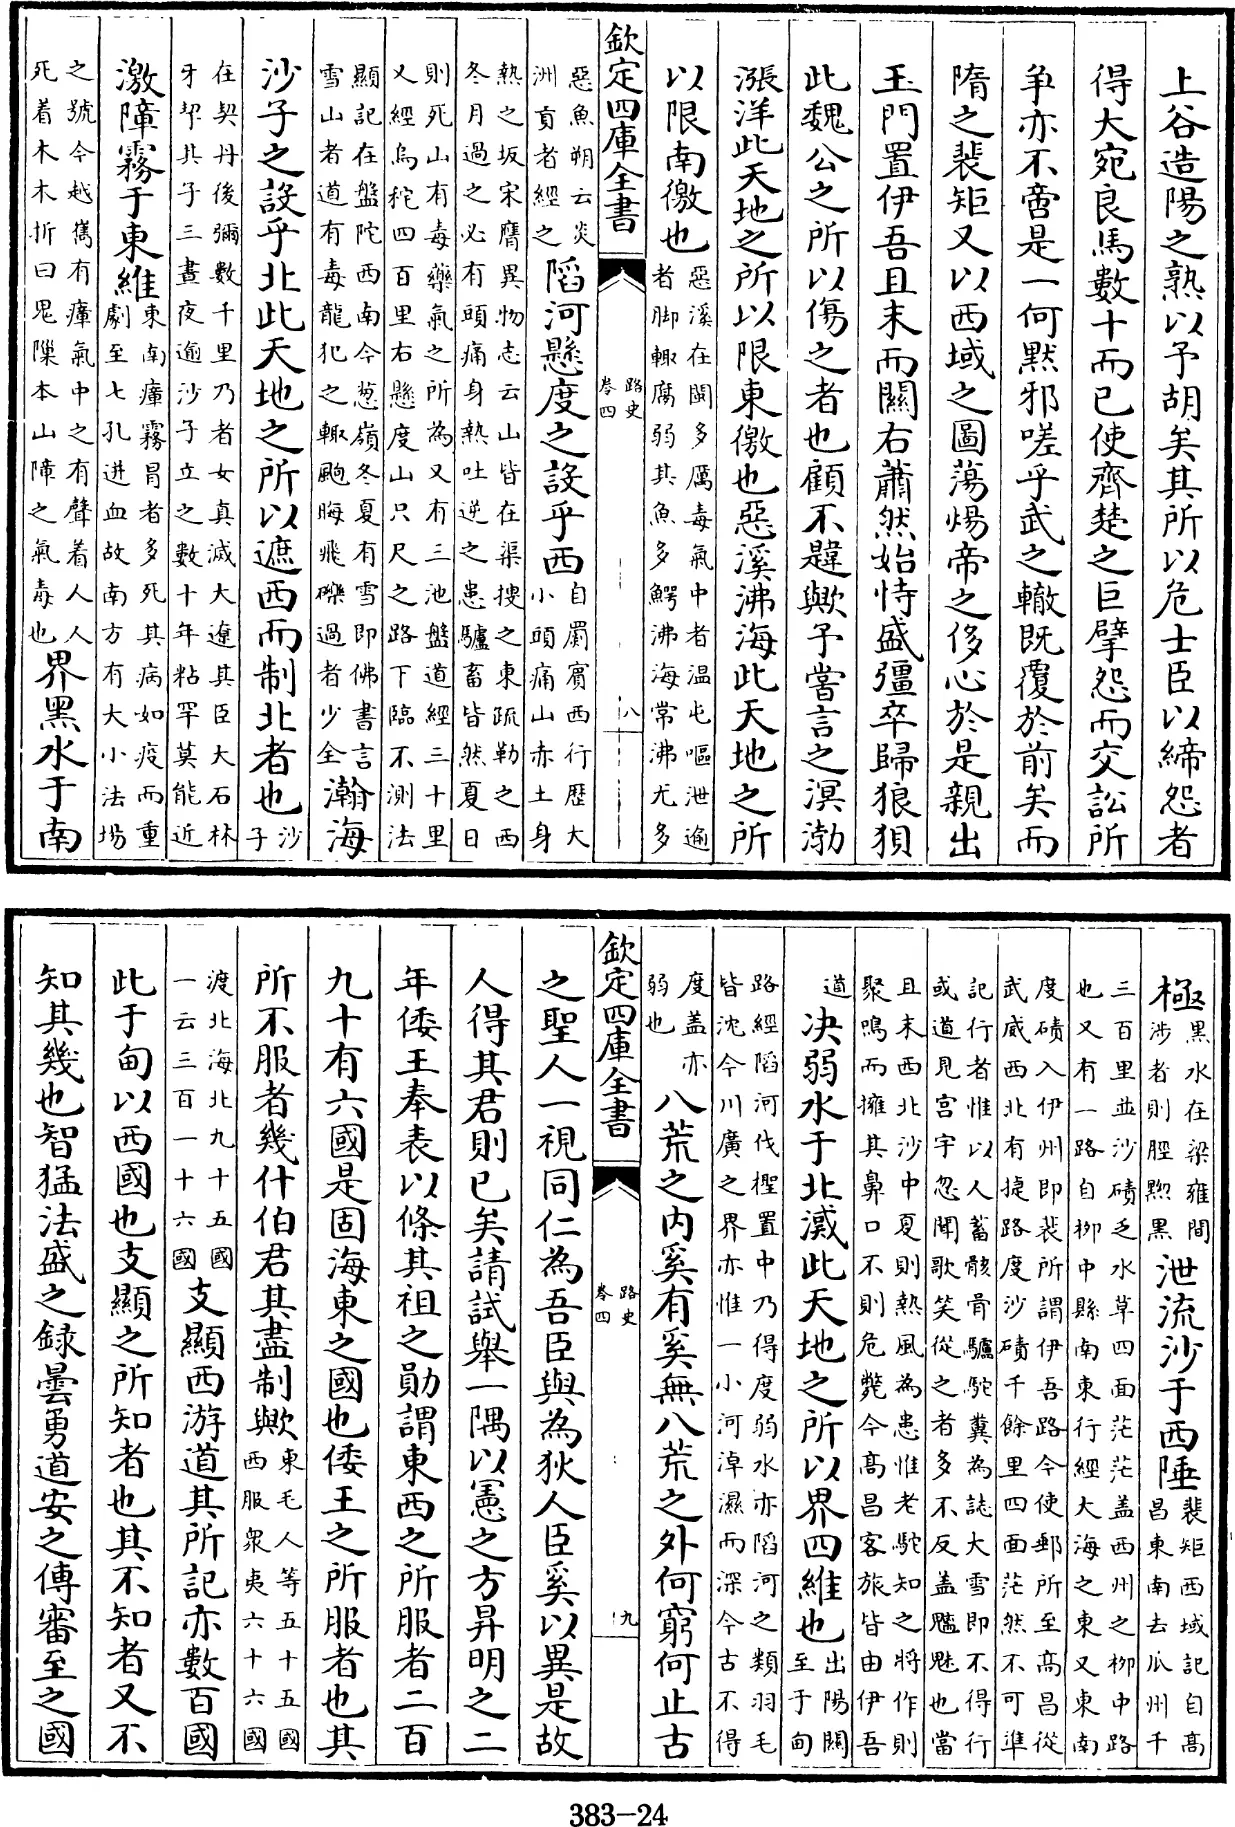 上谷造陽之熟以予胡矣其所以危士臣以締怨者
得大宛良馬數十而已使齊楚之巨擘怨而交訟所
争亦不啻是一何黙邪嗟乎武之轍既覆於前矣而
隋之裴矩又以西域之圖蕩煬帝之侈心於是親出
玉門置伊吾且末而關右蕭然始恃盛彊卒歸狼狽
此魏公之所以傷之者也顧不韙歟予嘗言之溟渤
漲洋此天地之所以限東徼也惡溪沸海此天地之所
以限南徼也惡溪在閩多厲毒氣中者温屯嘔泄逾
者脚輙腐弱其魚多鰐沸海常沸尤多
欽定四庫全書
路史
卷四
八
惡魚朔云炎
洲貢者經之
䧟河懸度之設乎西自罽賓西行歴大
小頭痛山赤土身
熱之坂宋膺異物志云山皆在渠搜之東疏勒之西
冬月過之必有頭痛身熱吐逆之患驢畜皆然夏日
則死山有毒藥氣之所為又有三池盤道經三十里
又經烏秅四百里右懸度山只尺之路下臨不測法
顯記在盤陀西南今葱嶺冬夏有雪即佛書言
雪山者道有毒龍犯之輙颰晦飛礫過者少全瀚海
沙子之設乎北此天地之所以遮西而制北者也沙
子
在契丹後彌數千里乃者女真滅大遼其臣大石林
牙挈其子三晝夜逾沙子立之數十年粘罕莫能近
激障霧于東維東南瘴霧冒者多死其病如疫而重
劇至七孔迸血故南方有大小法場
之號今越嶲有瘴氣中之有聲着人人
死着木木折曰鬼隟本山障之氣毒也界黒水于南
極黒水在梁雍間
涉者則脛黙黒
泄流沙于西陲裴矩西域記自高
昌東南去瓜州千
三百里並沙磧乏水草四面茫茫盖西州之栁中路
也又有一路自栁中縣南東行經大海之東又東南
度磧入伊州即裴所謂伊吾路今使郵所至高昌從
武威西北有捷路度沙磧千餘里四面茫然不可準
記行者惟以人蓄骸骨驢駝糞為誌大雪即不得行
或道見宫宇忽聞歌笑從之者多不反盖魑魅也當
且末西北沙中夏則熱風為患惟老駝知之將作則
聚鳴而擁其鼻口不則危斃今高昌客旅皆由伊吾
道決弱水于北滅此天地之所以界四維也出陽關
至于甸
路經䧟河伐檉置中乃得度弱水亦䧟河之類羽毛
皆沈今川廣之界亦惟一小河淖濕而深今古不得
度盖亦
弱也
八荒之内奚有奚無八荒之外何窮何止古
欽定四庫全書
路史
卷四
九
之聖人一視同仁為吾臣與為狄人臣奚以異是故
人得其君則已矣請試舉一隅以憲之方昇明之二
年倭王奉表以條其祖之勛謂東西之所服者二百
九十有六國是固海東之國也倭王之所服者也其
所不服者幾什伯君其盡制歟東毛人等五十五國
西服衆夷六十六國
渡北海北九十五國
一云三百一十六國
支顯西游道其所記亦數百國
此于甸以西國也支顯之所知者也其不知者又不
知其幾也智猛法盛之録曇勇道安之傳審至之國
383-24